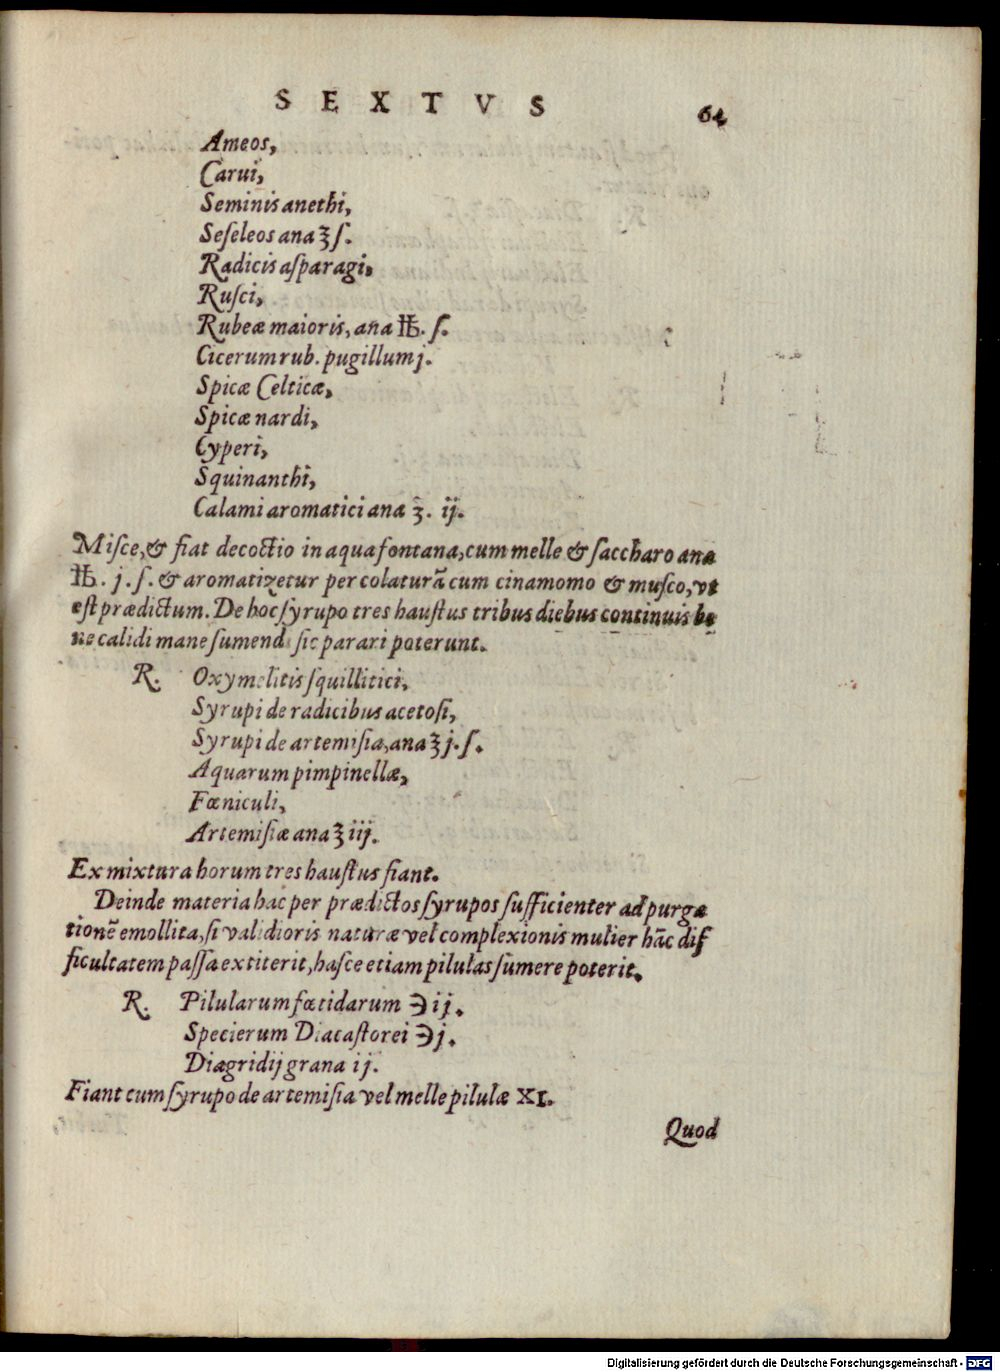 SEXTVS 64
Ameos,
Carui,
Seminis anethi,
Seſeleos ana ʒ ſ.
Radicis aſparagi,
Ruſci,
Rubeæ maioris, ana ℔. ſ.
Cicerum rub. pugillum j.
Spicæ Celticæ,
Spicæ nardi,
Cyperi,
Squinanthi,
Calami aromatici ana ʒ. ij.
Miſce, & fiat decoctio in aqua fontana, cum melle & ſaccharo ana
℔. j. ſ. & aromatizetur per colaturã cum cinamomo & muſco, vt
eſt prædictum. De hoc ſyrupo tres hauſtus tribus diebus continuis be
ne calidi mane ſumendi ſic parari poterunt.
R. Oxymelitis ſquillitici,
Syrupi de radicibus acetoſi,
Syrupi de artemiſia, ana ℥ j. ſ.
Aquarum pimpinellæ,
Fœniculi,
Artemiſiæ ana ℥ iij.
Ex mixtura horum tres hauſtus fiant.
Deinde materia hac per prædictos ſyrupos ſufficienter ad purga
tionẽ emollita, ſi validioris naturæ vel complexionis mulier hãc dif
ficultatem paſſa extiterit, haſce etiam pilulas ſumere poterit.
R. Pilularum fœtidarum ℈ ij.
Specierum Diacaſtorei ℈ j.
Diagridij grana ij.
Fiant cum ſyrupo de artemiſia vel melle pilulæ XI.
Quod
Digitalisierung gefördert durch die Deutsche Forschungsgemeinschaft - DFG